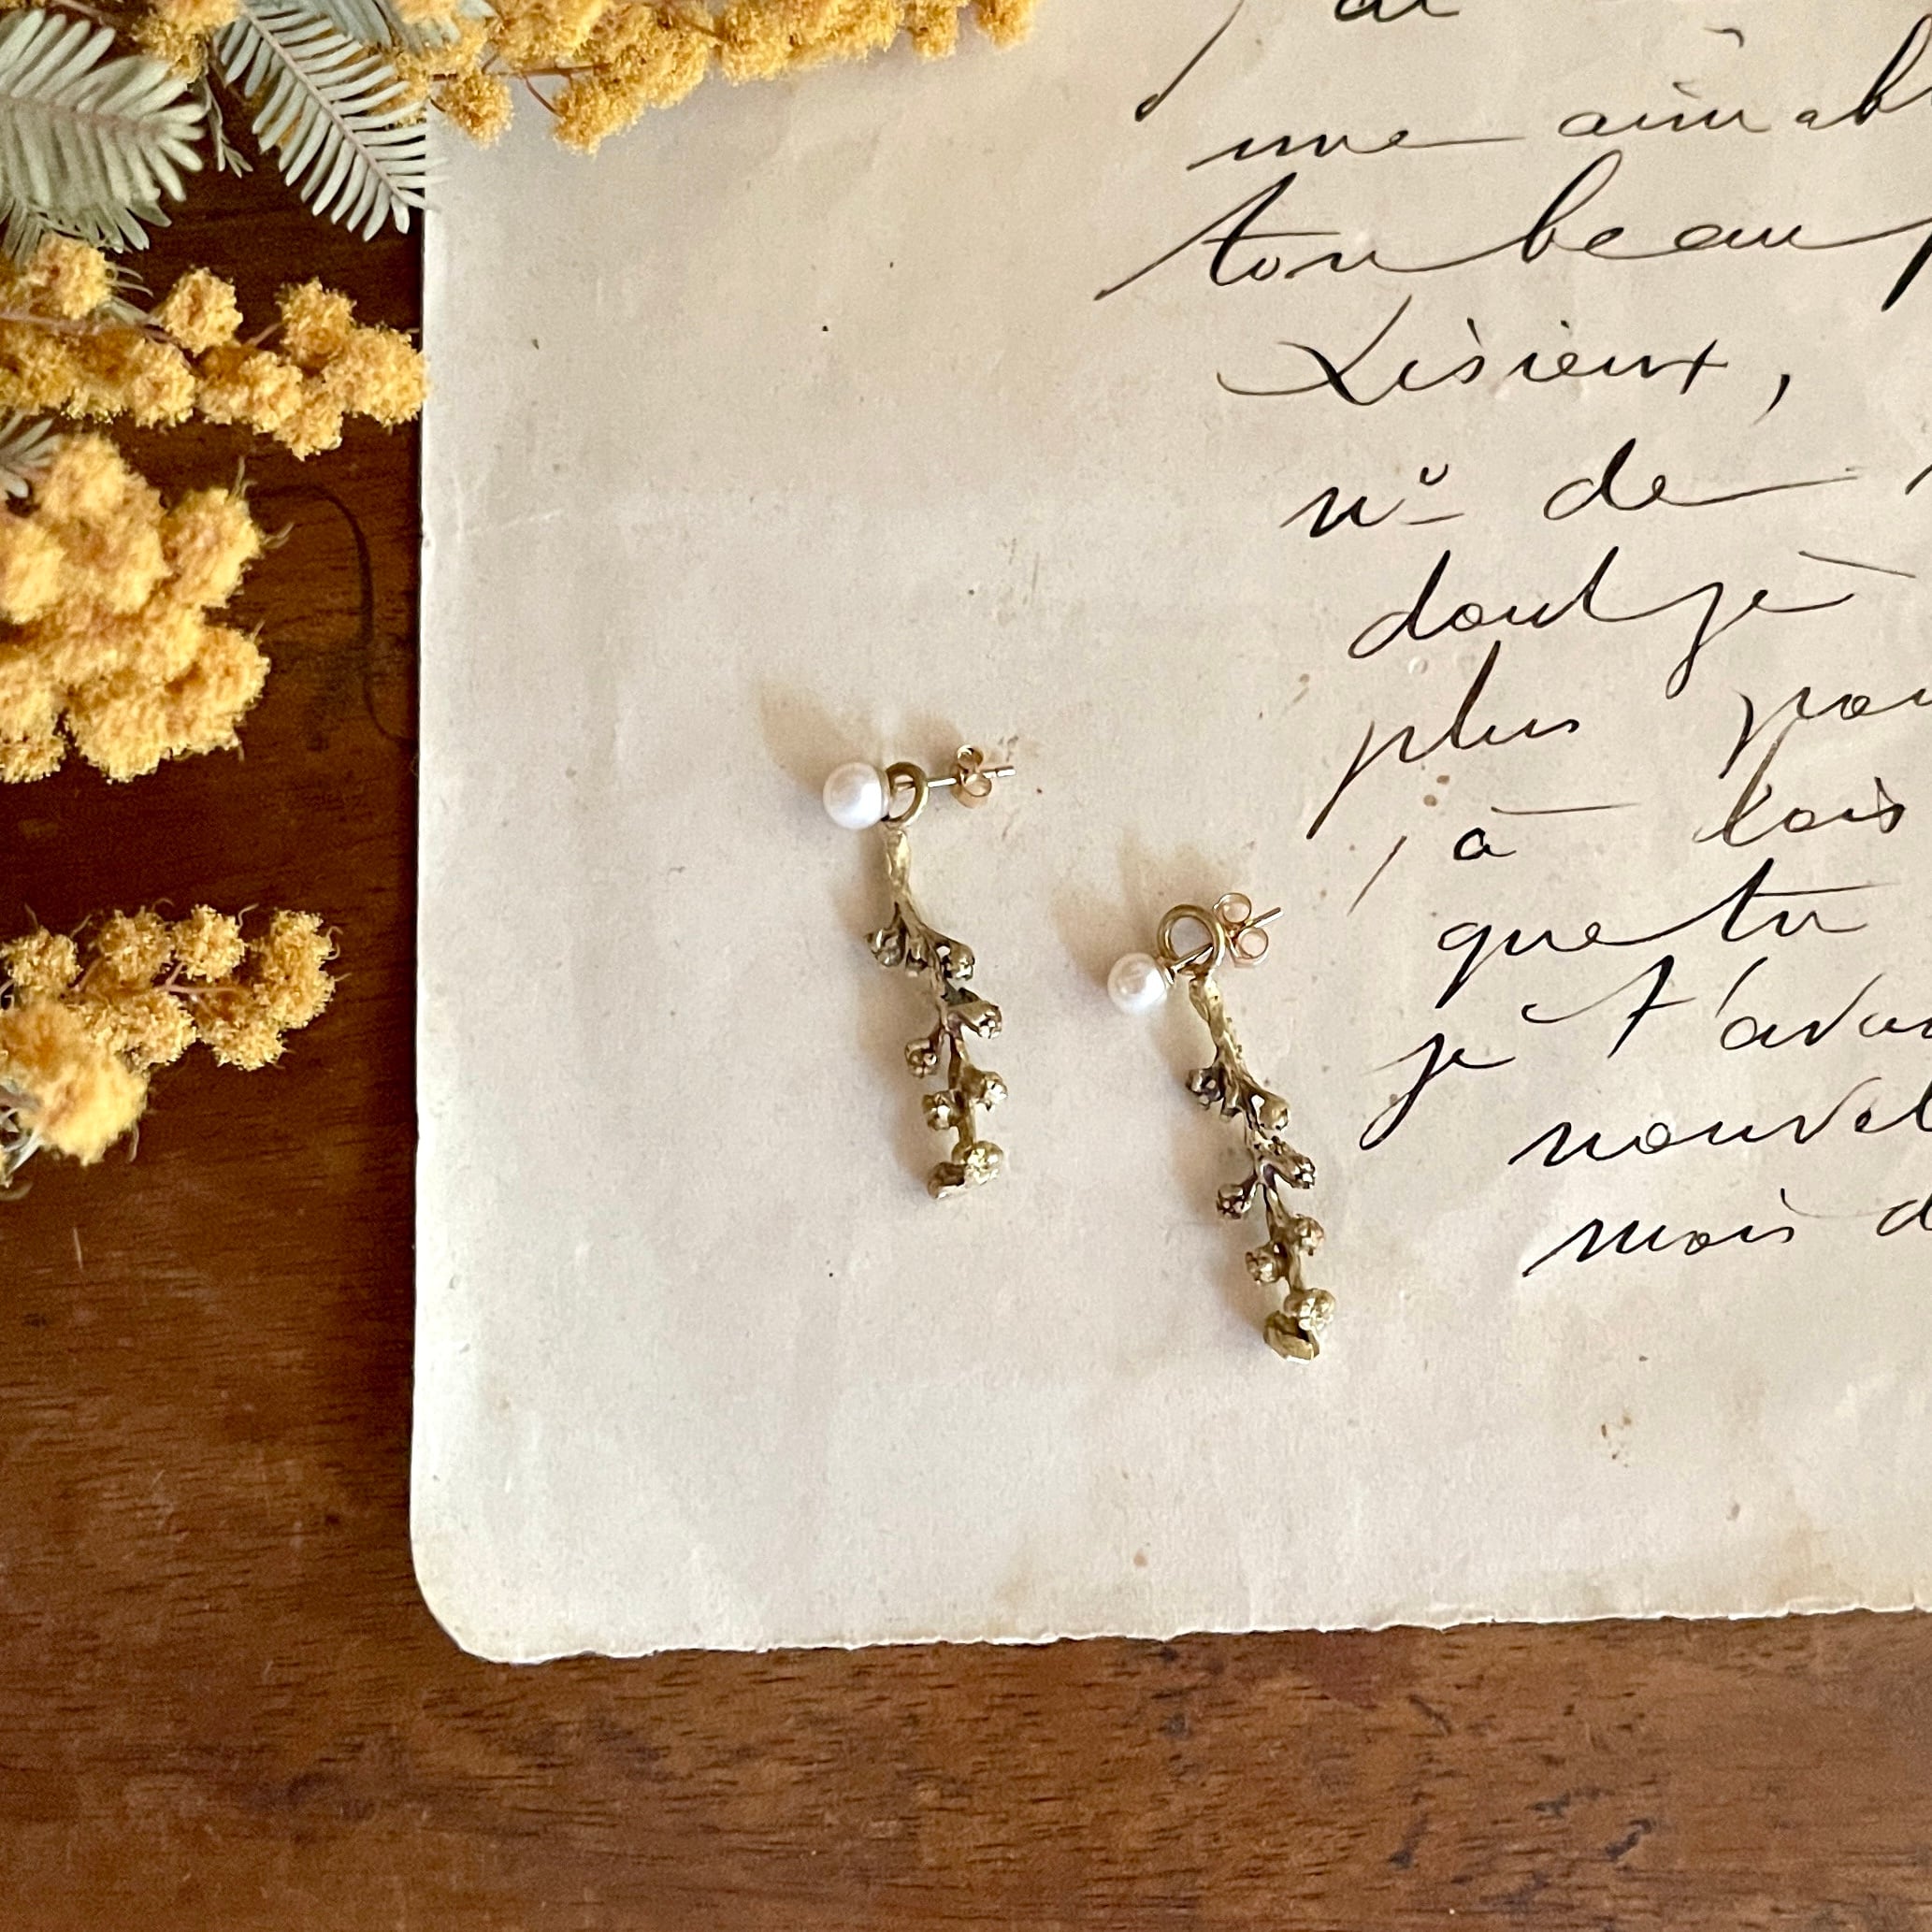 une aimab
ton beau p
Lisieux,
nº de
dont je
plus pou
à Lois
que tu
je t'avai
nouvel
mois d